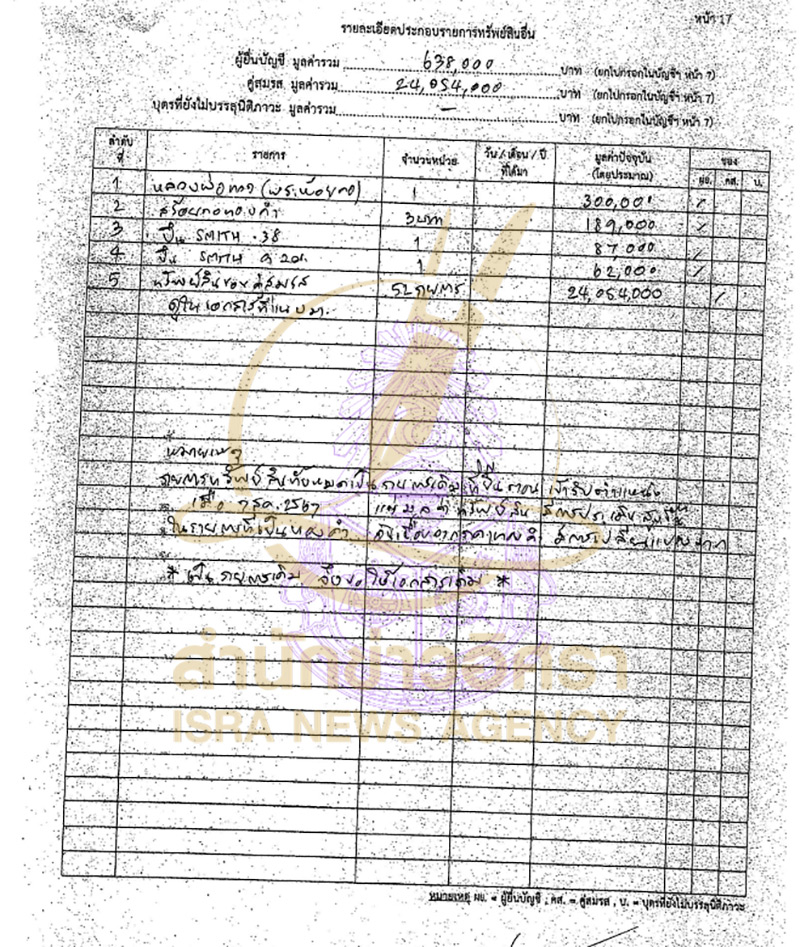 หน้า 17
รายละเอียดประกอบรายการทรัพย์สินอื่น
ผู้ยื่นบัญชี มูลค่ารวม 638,000 บาท (ยกไปกรอกในบัญชีฯ หน้า 7)
คู่สมรส มูลค่ารวม 24,054,000 บาท (ยกไปกรอกในบัญชีฯ หน้า 7)
บุตรที่ยังไม่บรรลุนิติภาวะ มูลค่ารวม - บาท (ยกไปกรอกในบัญชีฯ หน้า 7)
ลำดับที่ รายการ จำนวนหน่วย วัน/เดือน/ปี ที่ได้มา มูลค่าปัจจุบัน (โดยประมาณ) ของ
ผย. คส. บ.
1 หลวงพ่อทวด (พระห้อยคอ) 1 300,00 /
2 สร้อยคอทองคำ 3 บาท 189,000 /
3 ปืน SMITH .38 1 87,000 /
4 ปืน SMITH 1 62,000 /
5 ทรัพย์สินของคู่สมรส 52 รายการ 24,054,000 /
ดูในเอกสารที่แนบมา
หมายเหตุ
รายการทรัพย์สินทั้งหมดเป็นรายการเดิมที่ยื่นตอนเข้ารับตำแหน่ง
เมื่อ 2567 แต่มูลค่าทรัพย์สิน
ในรายการที่เป็นทองคำ เนื่องจากราคาทองคำ มีการเปลี่ยนแปลงมาก
* เป็นรายการเดิม จึงขอใช้เอกสารเดิม *
สำนักข่าวอิศรา
ISRA NEWS AGENCY
หมายเหตุ ผย. = ผู้ยื่นบัญชี , คส. = คู่สมรส , บ. = บุตรที่ยังไม่บรรลุนิติภาวะ